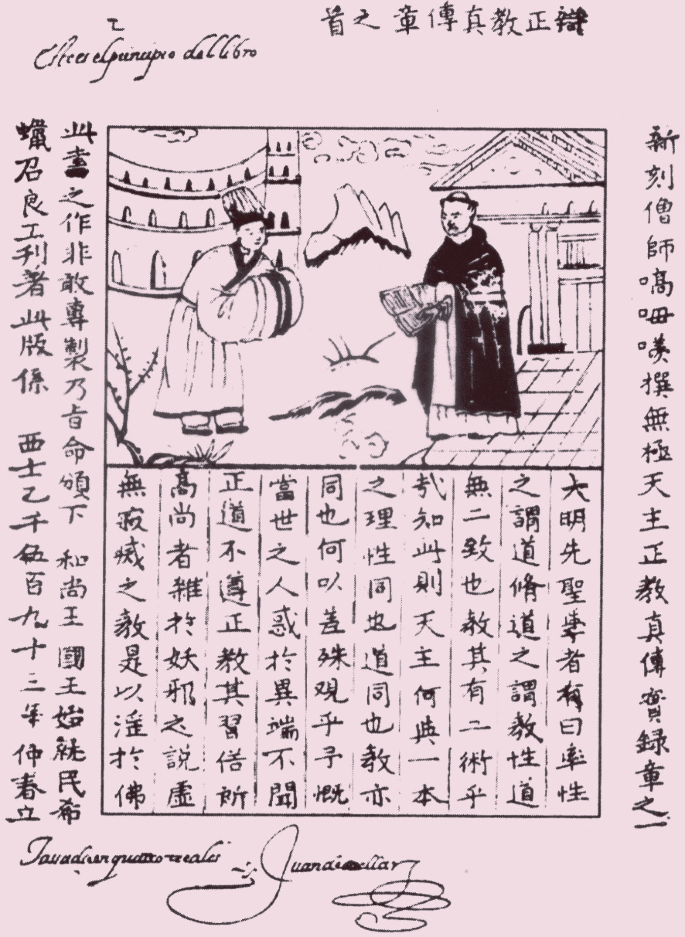 辯正教真傳章之首
乙
Este es el principio del libro
新刻僧師嗃呣𠹌撰無極天主正教真傳實錄章之一
大明先聖學者有曰率性
之謂道脩道之謂教性道
無二致也教其有二術乎
哉知此則天主何與一本
之理性同也道同也教亦
同也何以差殊觀乎予慨
當世之人惑於異端不聞
正道不遵正教其習俗所
高尚者雜於妖邪之說虛
無寂滅之教是以淫於佛
此書之作非敢專製乃旨命頒下 和尚王 國王始就民希
蠟召良工刊著此版係 西士乙千伍百九十三年仲春立
Tasado en quatro reales
Juan de cuellar